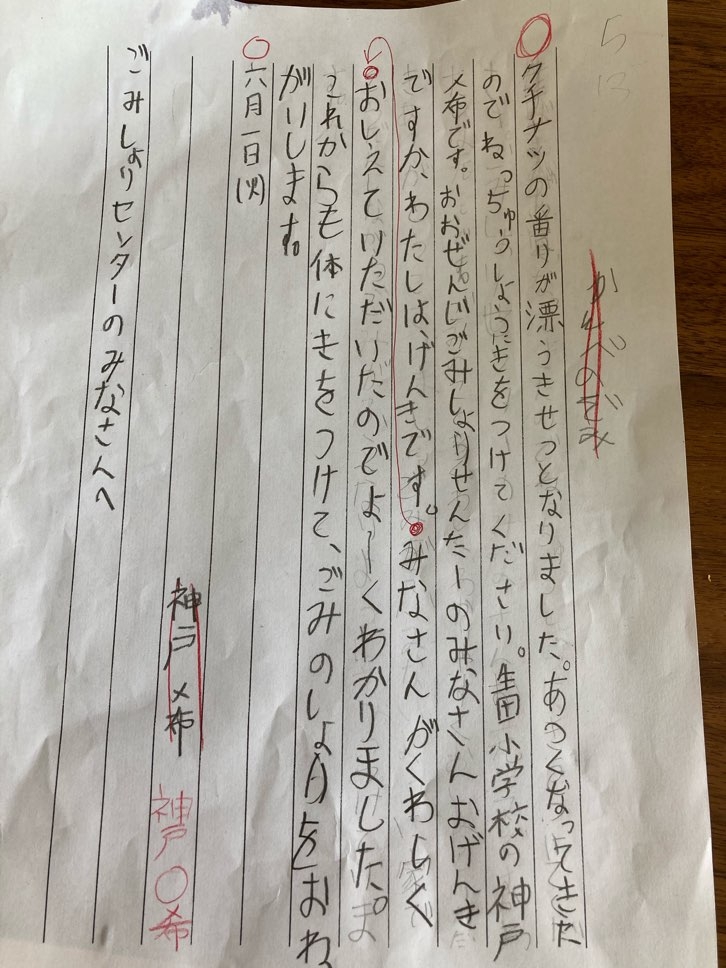 5
13
かんべのぞみ
クチナツの香りが漂うきせっとなりました。あつくなってきた
のでねっちゅうしょうにきをつけてください。生田小学校の神戸
メ布です。おおぜんじごみしょりせんたーのみなさんおげんき
ですか、わたしは、げんきです。みなさんがくわしく
おしえていただいたのでよーくわかりました。ま
これからも体にきをつけて、ごみのしょりを」おね
がいします。
六月一日(火)
神戸メ布
神戸〇希
ごみしょりセンターのみなさんへ